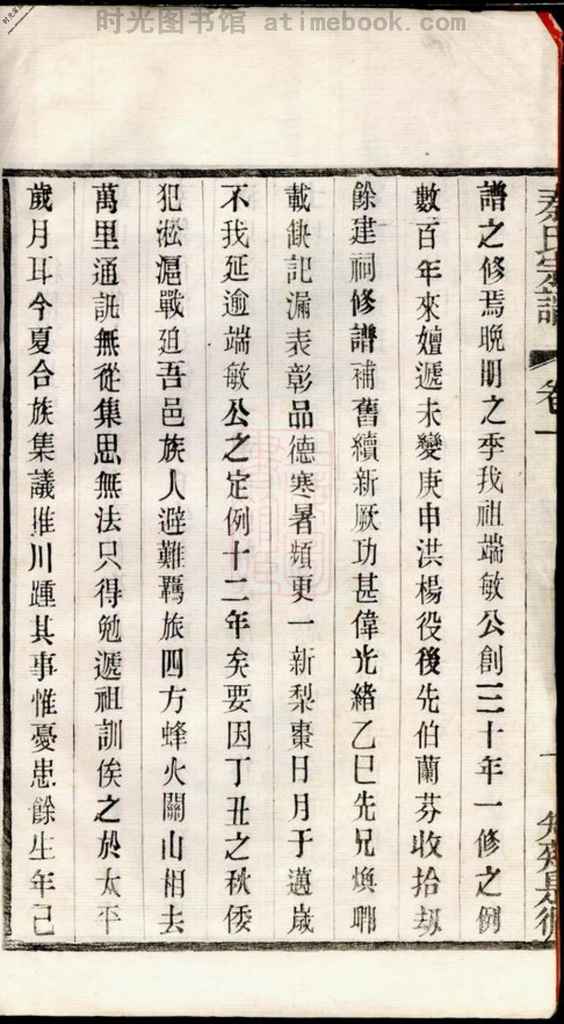 时光图书馆 atimebook.com
秦氏宗譜
卷一
一
譜之修焉晚明之季我祖端敏公創三十年一修之例
數百年來嬗遞未變庚申洪楊役後先伯蘭芬收拾劫
餘建祠修譜補舊續新厥功甚偉光緒乙巳先兄煥
載缺記漏表彰品德寒暑頻更一新梨棗日月于邁歲
不我延逾端敏公之定例十二年矣要因丁丑之秋倭
犯淞滬戰延吾邑族人避難羈旅四方蜂火關山相去
萬里通訊無從集思無法只得勉遞祖訓俟之於太平
歲月耳今夏合族集議推川踵其事惟憂患餘生年已